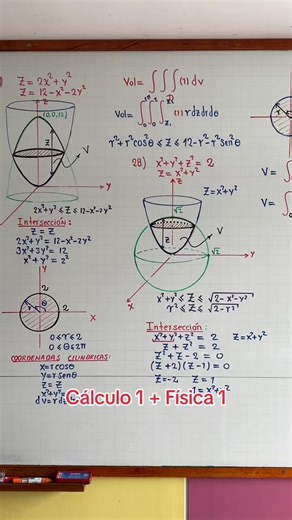 Z = 2x²+y²
Z = 12-x²-2y²
Z
(0,0,12)
Z
V
y
x
2x²+y² ≤ Z ≤ 12-x²-2y²
Intersección:
Z = Z
2x²+y² = 12-x²-2y²
3x²+3y² = 12
x²+y² = 2²
y
2
r
θ
2
x
0 ≤ r ≤ 2
0 ≤ θ ≤ 2π
COORDENADAS CILINDRICAS:
x = r cosθ
y = r senθ
Z = Z
x²+y² =
dV = r dz
Vol = ∭ (1) dv
D
Vol = ∫ ∫ ∫ (1) r dz dr dθ
r²+r²cos²θ ≤ Z ≤ 12-r²-r²sen²θ
28) x²+y²+z² = 2
Z = x²+y²
Z
Z = x²+y²
√2
Z
V
√2
y
x
x²+y² ≤ Z ≤ √2-x²-y²
r² ≤ Z ≤ √2-r²
Intersección:
x²+y²+z² = 2
Z = x²+y²
Z + Z² = 2
Z² + Z - 2 = 0
(Z+2)(Z-1) = 0
Z = -2 Z = 1
1 = x²+y²
V = ∫
V = ∫
Cálculo 1 + Física 1